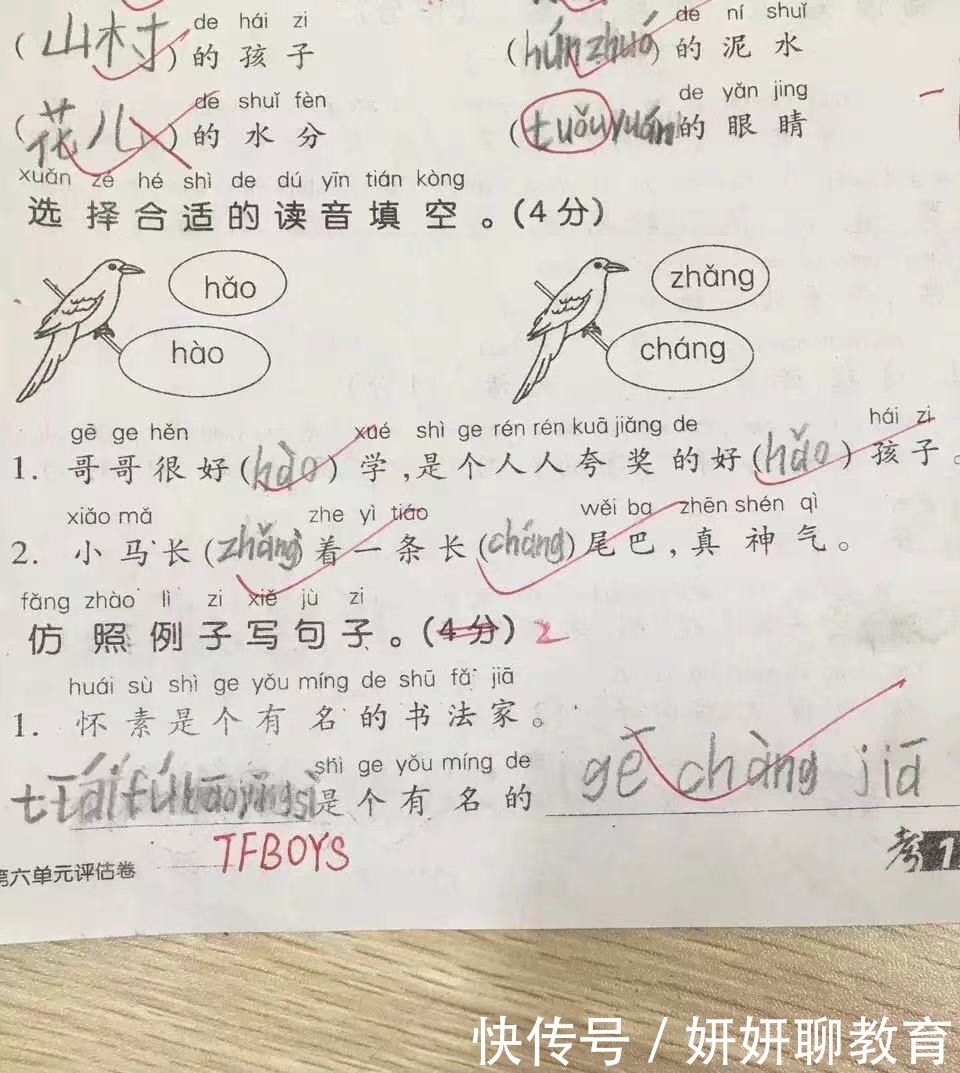 de hái zi
(山村)的孩子
de ní shuǐ
(húnzhuó)的泥水
de shuǐ fèn
(花儿)的水分
de yǎn jing
(tuǒuyuán)的眼睛
xuǎn zé hé shì de dú yīn tián kòng
选择合适的读音填空。(4分)
hǎo
hào
zhǎng
cháng
gē ge hěn xué shì ge rén rén kuā jiǎng de hái zi
1. 哥哥很好(hào)学,是个人人夸奖的好(hǎo)孩子。
xiǎo mǎ zhe yì tiáo wěi ba zhēn shén qì
2. 小马长(zhǎng)着一条长(cháng)尾巴,真神气。
fǎng zhào lì zi xiě jù zi
仿照例子写句子。(4分) 2
huái sù shì ge yǒu míng de shū fǎ jiā
1. 怀素是个有名的书法家。
shì ge yǒu míng de
是个有名的 gē chàng jiā
TFBOYS
第六单元评估卷
考1
快传号 / 妍妍聊教育